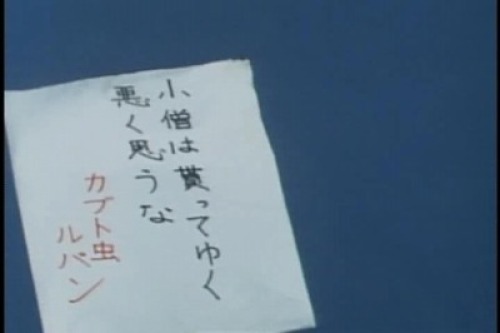 小僧は貰ってゆく
悪く思うな
カブト虫
ルパン